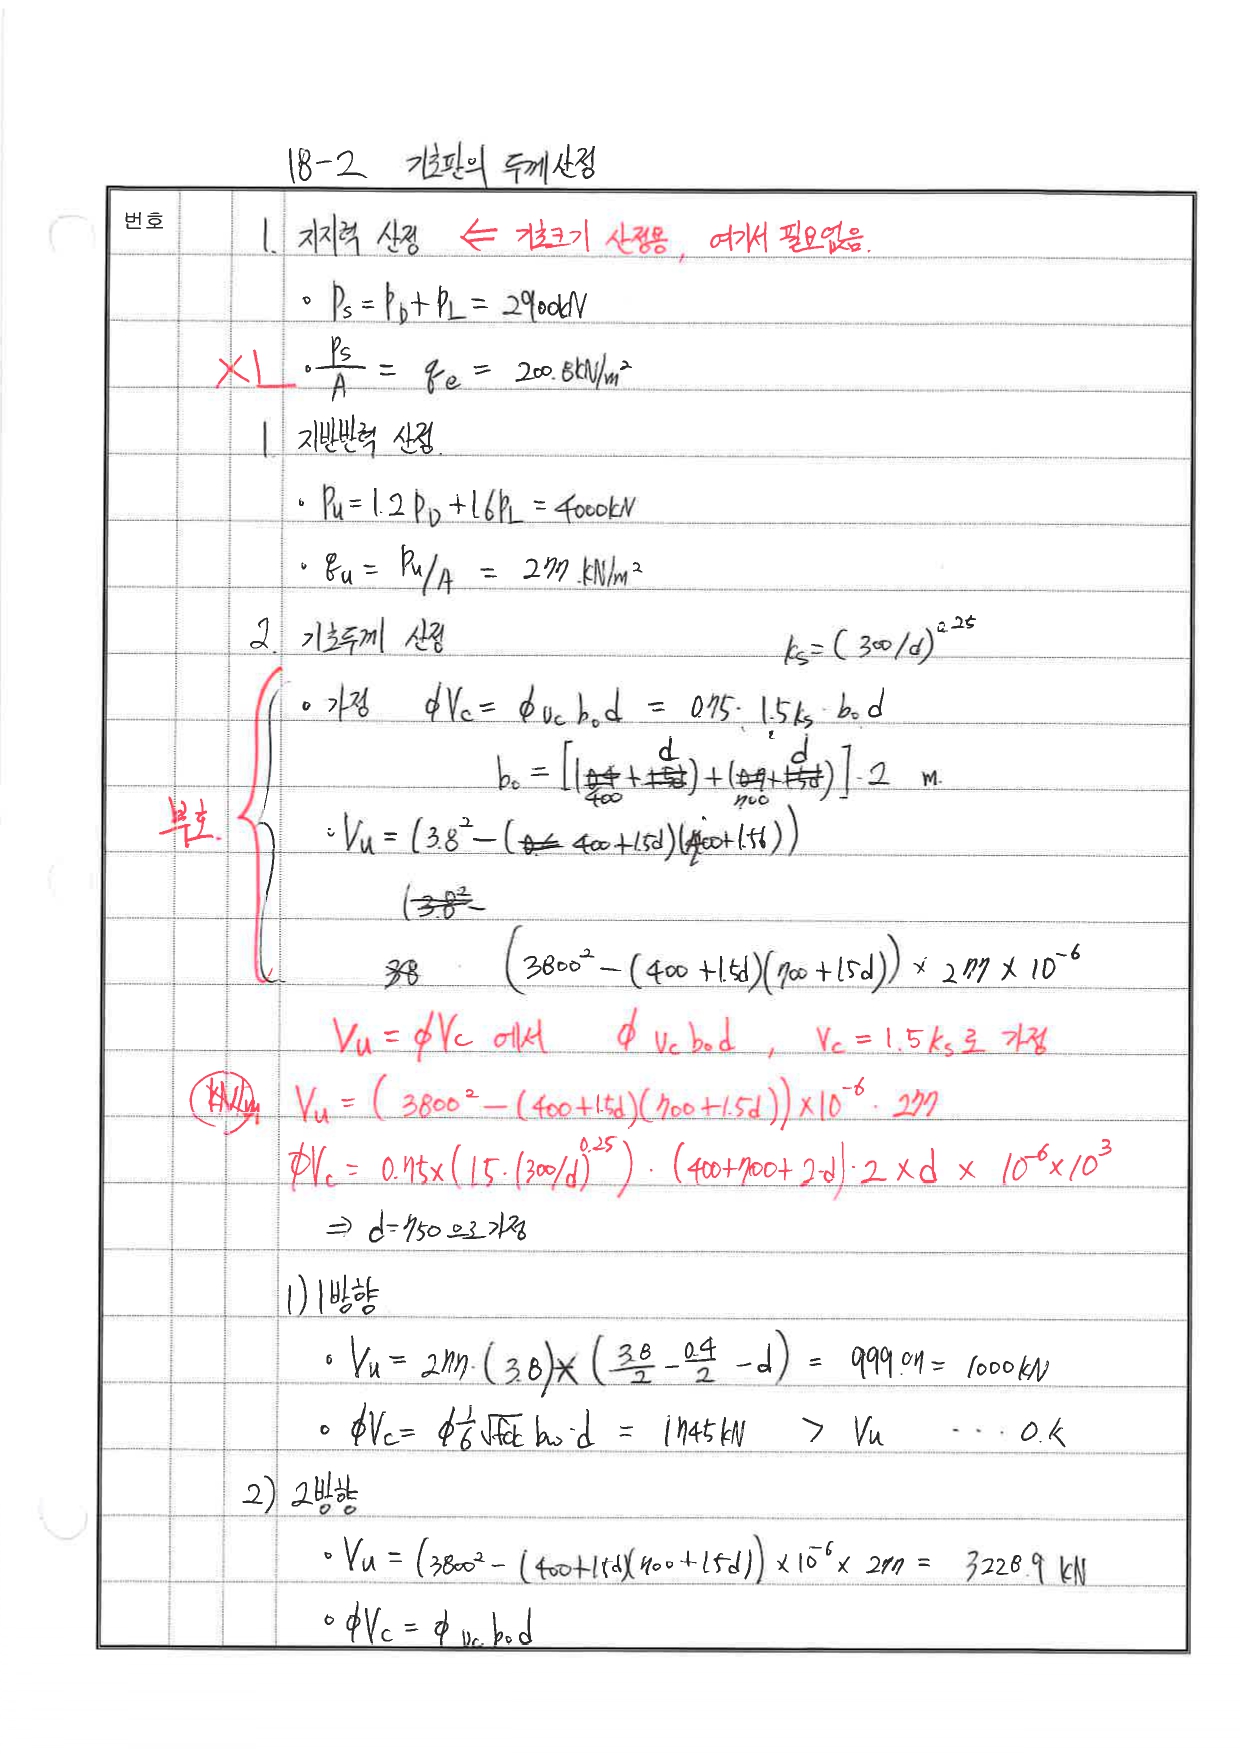 18-2 기초판의 두께산정
번호
1. 지지력 산정 ⇐ 기초크기 산정용, 여기서 필요없음.
• Ps = PD + PL = 2900kN
• Ps/A = qe = 200.8kN/m²
1 지반반력 산정.
• Pu = 1.2PD + 1.6PL = 4000kN
• qu = Pu/A = 277.kN/m²
2. 기초두께 산정 ks = (300/d)^0.25
• 가정 φVc = φ vc b₀ d = 0.75 · 1.5ks · b₀ d
b₀ = [(400 + d) + (700 + d)] · 2 m.
• Vu = (3.8² - (400 + 1.5d)(700 + 1.5d))
(3.8² -
38 (3800² - (400 + 1.5d)(700 + 1.5d)) × 277 × 10^-6
Vu = φVc 에서 φ vc b₀ d , vc = 1.5ks로 가정
Vu = (3800² - (400 + 1.5d)(700 + 1.5d)) × 10^-6 · 277
φVc = 0.75 × (1.5 · (300/d)^0.25) · (400 + 700 + 2·d) · 2 × d × 10^-6 × 10³
⇒ d = 750으로 가정
1) 1방향
• Vu = 277 · (3.8) × (3.8/2 - 0.4/2 - d) = 999.97 = 1000kN
• φVc = φ 1/6 √fck bw · d = 1745kN > Vu ··· O.K
2) 2방향
• Vu = (3800² - (400 + 1.5d)(700 + 1.5d)) × 10^-6 × 277 = 3228.9 kN
• φVc = φ vc b₀ d